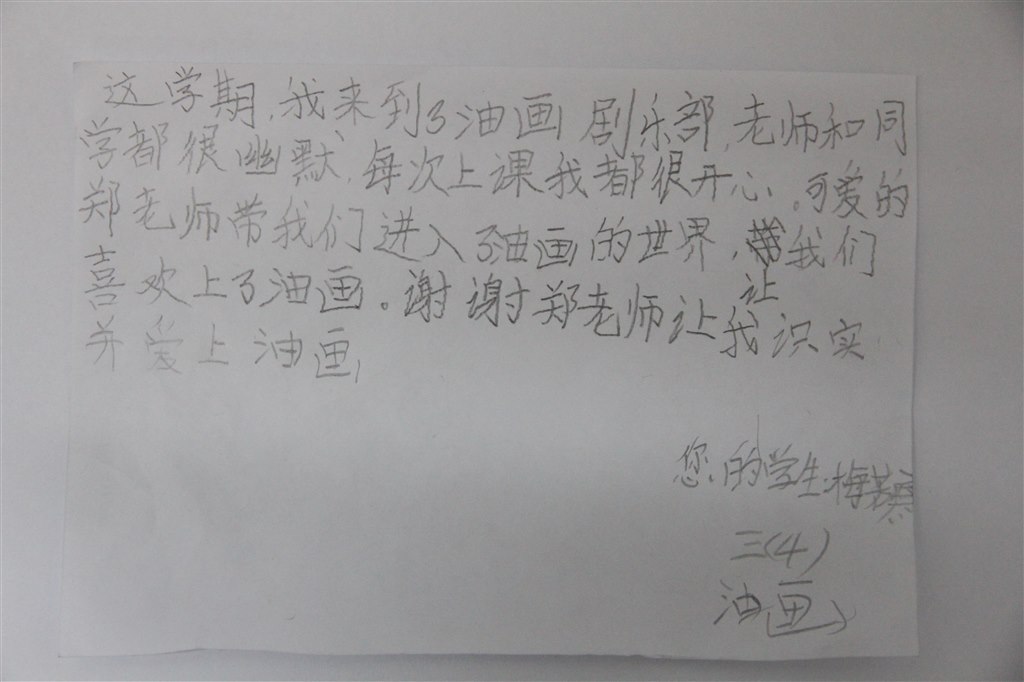 这学期,我来到了油画剧乐部,老师和同
学都很幽默,每次上课我都很开心.可爱的
郑老师带我们进入了油画的世界,带我们
让
喜欢上了油画。谢谢郑老师让我识实
并爱上油画,
您的学生:梅
三(4)
油画